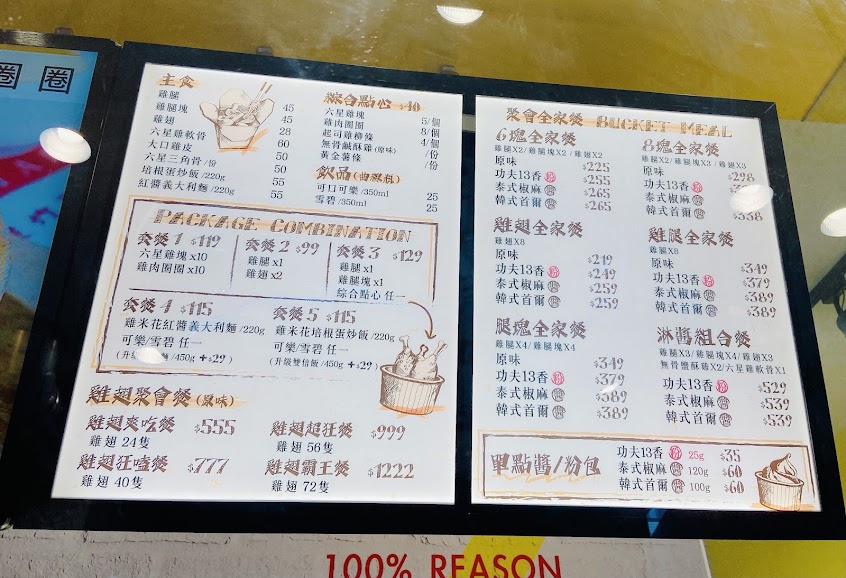 圈 圈
主食
雞腿
雞腿塊 45
雞翅 45
六星雞軟骨 28
大口雞皮 60
六星三角骨/份 50
培根蛋炒飯/220g 50
紅醬義大利麵/220g 55
55
綜合點心 $40
六星雞塊 5/個
雞肉圈圈 8/個
起司雞柳條 4/個
無骨鹹酥雞(原味) /份
黃金薯條 /份
飲品(曲線瓶)
可口可樂/350ml 25
雪碧/350ml 25
PACKAGE COMBINATION
套餐 1 $119
六星雞塊 x10
雞肉圈圈 x10
套餐 2 $99
雞腿 x1
雞翅 x2
套餐 3 $129
雞腿 x1
雞腿塊 x1
綜合點心 任一
套餐 4 $115
雞米花紅醬義大利麵/220g
可樂/雪碧 任一
(升級 /450g +$29)
套餐 5 $115
雞米花培根蛋炒飯/220g
可樂/雪碧 任一
(升級雙倍飯/450g +$29)
雞翅聚會餐(原味)
雞翅爽吃餐 $555
雞翅 24隻
雞翅超狂餐 $999
雞翅 56隻
雞翅狂嗑餐 $777
雞翅 40隻
雞翅霸王餐 $1222
雞翅 72隻
聚會全家餐 BUCKET MEAL
6塊全家餐
雞腿X2/雞腿塊X2/雞翅X2
原味 $225
功夫13香 粉 $255
泰式椒麻 醬 $265
韓式首爾 醬 $265
8塊全家餐
雞腿X2/雞腿塊X3/雞翅X3
原味 $298
功夫13香 粉
泰式椒麻 醬
韓式首爾 醬 $338
雞翅全家餐
雞翅X8
原味 $219
功夫13香 粉 $249
泰式椒麻 醬 $259
韓式首爾 醬 $259
雞腿全家餐
雞腿X8
原味 $349
功夫13香 粉 $379
泰式椒麻 醬 $389
韓式首爾 醬 $389
腿塊全家餐
雞腿X4/雞腿塊X4
原味 $349
功夫13香 粉 $379
泰式椒麻 醬 $389
韓式首爾 醬 $389
淋醬組合餐
雞腿X3/雞腿塊X4/雞翅X3
無骨鹽酥雞X2/六星雞軟骨X1
功夫13香 粉 $529
泰式椒麻 醬 $539
韓式首爾 醬 $539
單點醬/粉包
功夫13香 粉 25g $35
泰式椒麻 醬 120g $60
韓式首爾 醬 100g $60
100% REASON